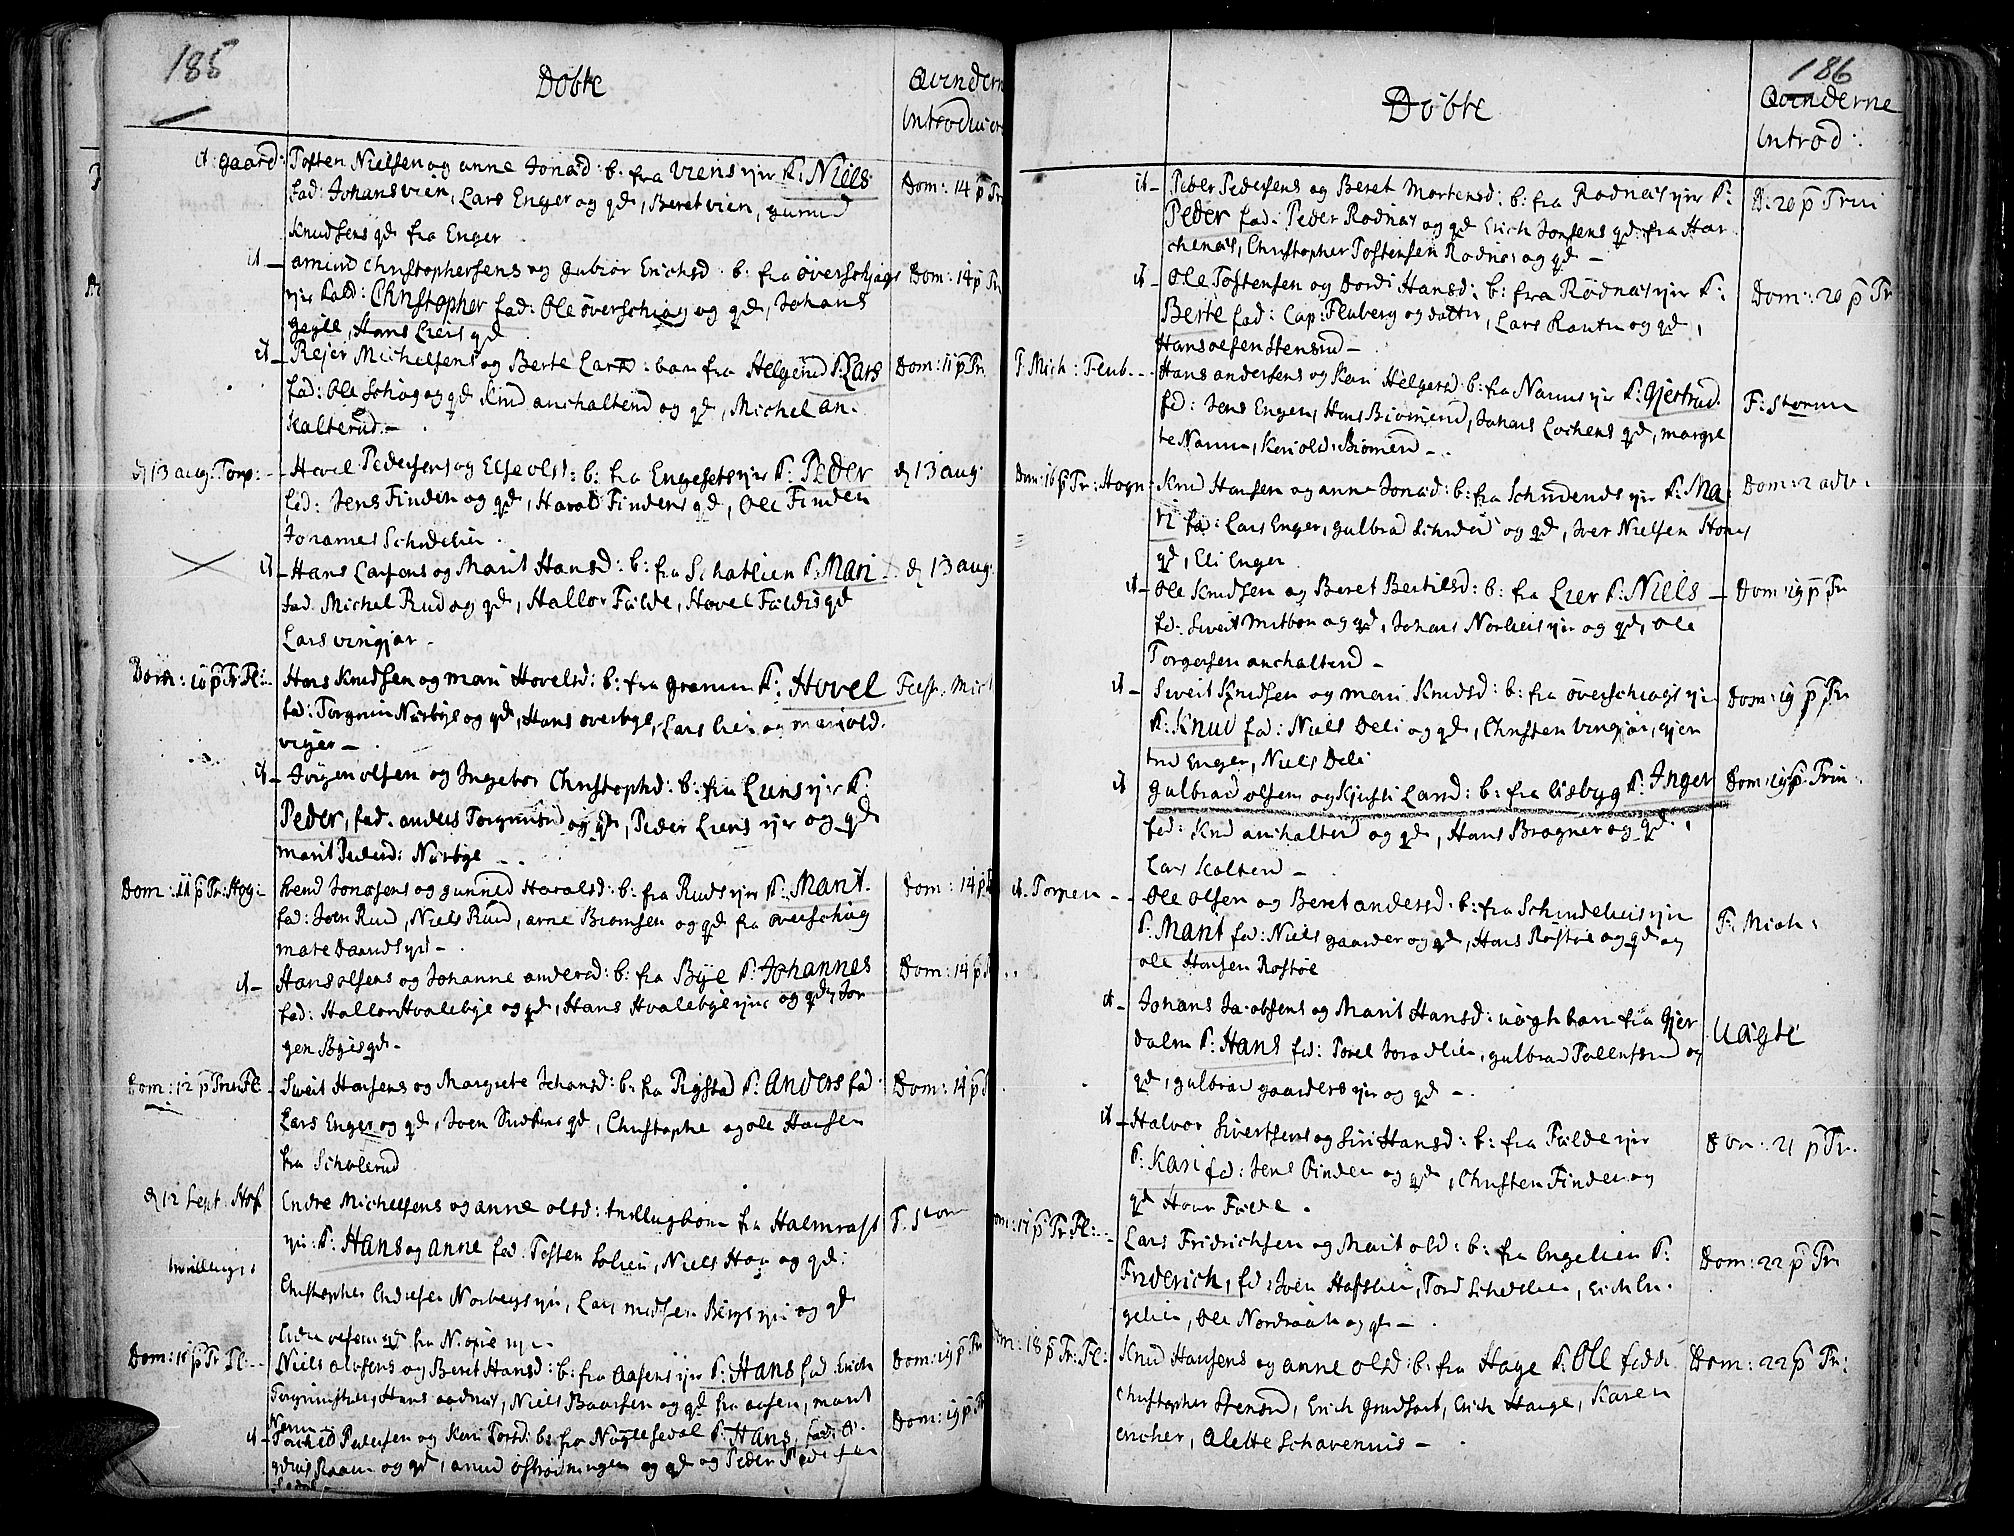 185
Döbte
Qvinderne
Introducer
it: gaard: Tosten Nielsen og anne Jonæd: b: fra Viens ejer P: Niels
fad: Johans vien, Lars Enger og qd, Beret vien, gunild
Knudsens qd fra Enger
Dom: 14 p Tr
it — amund Christophersens og gubiør Erichsd: b: fra överschiags
ejer kald: Christopher fad: Ole överschiag og qd, Johans
Hans Liers qd
Dom: 14 p Tr
it — Rejer Michelsens og Berte Larsd: barn fra Helgerud P: Lars
fad: Ole Schiag og qd Knud anchalterud og qd, Michel an-
kalterud —
Dom: 11 p Tr
d 13 aug: Torp: — Hovel Pedersens og Else olsd: b: fra Engesets ejer P: Peder
fad: Jens Finden og qd, Harald Findens qd, Ole Finden
Johannes Schudelien
d 13 aug:
it — Hans Larsens og Marit Hansd: b: fra Schatlien P: Mari
fad. Michel Rud og qd, Hallor Fälde, Hovel Fäldes qd
Lars vingjar —
d 13 aug:
Dom: 10 p Tr Fl: — Hans Knudsen og mari Hovelsd: b: fra gramm P: Hovel
fad: Torgrim Nørbye og qd, Hans överbye, Lars Lien og mari old.
viger —
Fest: Mich
it — Jörgen olsen og Ingebor Christophd: b: fra Luns ejer P:
Peder, fad. anders Torgrimsrud og qd, Peder Liens ejer og qd
marit Pedersd: Nørbye —
Dom: 11 p Tr: Hog: — Svend Jonæsens og gunned Haralsd: b: fra Ruds ejer P: Marit.
fad: Joen Rud, Niels Rud, arne Biørnsen og qd fra överschiag
mare
Dom: 14 p T
it — Hans olsens og Johanne andersd: b: fra Bÿe P: Johannes
fad: Hallor Hvalebye og qd, Hans Hvalebye ejer og qd, Jør
gen Byes qd —
Dom: 14 p T
Dom: 12 p Trin: Fl — Sveit Hansens og Margrete Johansd: b: fra Rÿstad P: Anders fad
Lars Enger og qd, Joen qd, Christopher og ole Hansen
fra Scholerud
Dom: 14 p
d 12 Sept: Hof Endre Michelsens og anne olsd: tvillingbörn fra Halmrast
ejer: P: Hans og anne fad: Tosten Lolien, Niels Hog og qd:
tvillinger
Christopher Endresen Norbergs ejer, Lars Bergs ejer og qd
F: Storm
Dom: 15 p Tr Fl — Niels olufsens og Beret Hansd: b: fra Aasens ejer P: Hans fad Erich
Hans aadnas, Niels Baarsen og qd fra aasen, marit
Dom: 19 p Tr
it — Pedersen og Kari Torsd: b: fra P: Hans, fad:
Raam og qd, amund og qd og Peder Pedersen
Dom: 19 p Tr
186
Döbte
Qvinderne
Introd:
it — Peder Pedersens og Beret Mortensd: b: fra Rodnæs ejer P:
Peder fad: Peder Rodnæs og qd Erich Jonsens qd: fra Hær
chenæs, Christopher Tostensen Rodnæs og qd —
D: 20 p Trin
it — Ole Tostensen og Dordi Hansd: b: fra Rödnæs ejer P:
Berte fad: Cap: Fleuberg og datter, Lars Rantu og qd,
Hans olsen Stensrud —
Dom: 20 p Tr
F: Mich: Flub. — Hans andersens og Kari Helgersd: b: fra Nannes ejer P: Gjertrud
fad: Jens Enger, Hans Biørnerud, Johans Lochens qd, margre
te Nannu, Kari old: Biørnerud —
F: Storm
Dom: 16 p Tr: Hogn: Knud Hansen og anne Jonæd: b: fra Schudends ejer P: Ma
ri fad: Lars Enger, gulbrad Schuderud og qd, Iver Nielsen Stonæs
qd, Eli Enger
Dom: 2 adv:
it — Ole Knudsen og Beret Bertilsd: b: fra Lier P: Niels
fad: Sveit Mitbøn og qd, Johans Norlies ejer og qd, ole
Torgersen anchalterud —
Dom: 19 p Tr
it — Sveit Knudsen og mari Knudsd: b: fra överschiags ejer
P: Knud fad: Niels Deli og qd, Christen vingjar, gjer
trud Enger, Niels Deli
Dom: 19 p Tr
it gulbrad olsen og Kjersti Larsd: b: fra lisbyg P: Inger
fad: Knud anchalterud og qd, Hans Brogner og qd:,
Lars Kalterud —
Dom: 19 p: Trin
it. Torpen — Ole olsen og Beret andersd: b: fra Schudeliens ejer
P: Marit fad: Niels gaarder og qd, Hans Røstøe og qd og
ole Hansen Rostøe
F: Mich:
it — Johans Jacobsens og Marit Hansd: uægte barn fra Gjer
dalen P: Hans fad: Torel Joradlien, gulbrad Tollefsrud og
qd, gulbrad gaarders ejer og qd —
Uægte
it — Halvor Sivertsens og Siri Hansd: b: fra Fälde ejer
P: Kari fad: Jens Finden og qd, Christen Finden og
qd Hover Fälde.
Dom: 21 p Tr.
Dom: 17 p Tr Fl: — Lars Fridrichsen og Marit old: b: fra Engelien P:
Friderich, fad: Joen Hafslien, Tord Schedelien, Erich En-
gelien, Ole Nordraak og qd —
Dom: 22 p Tr
Dom: 18 p Tr: Fl: Knud Hansens og anne olsd: b: fra Hage P: Ole fadd:
Christopher Stensrud, Erich Grudsæt, Erich Hauge, Karen
encher, Alette Schavenuis —
Dom: 22 p Tr: